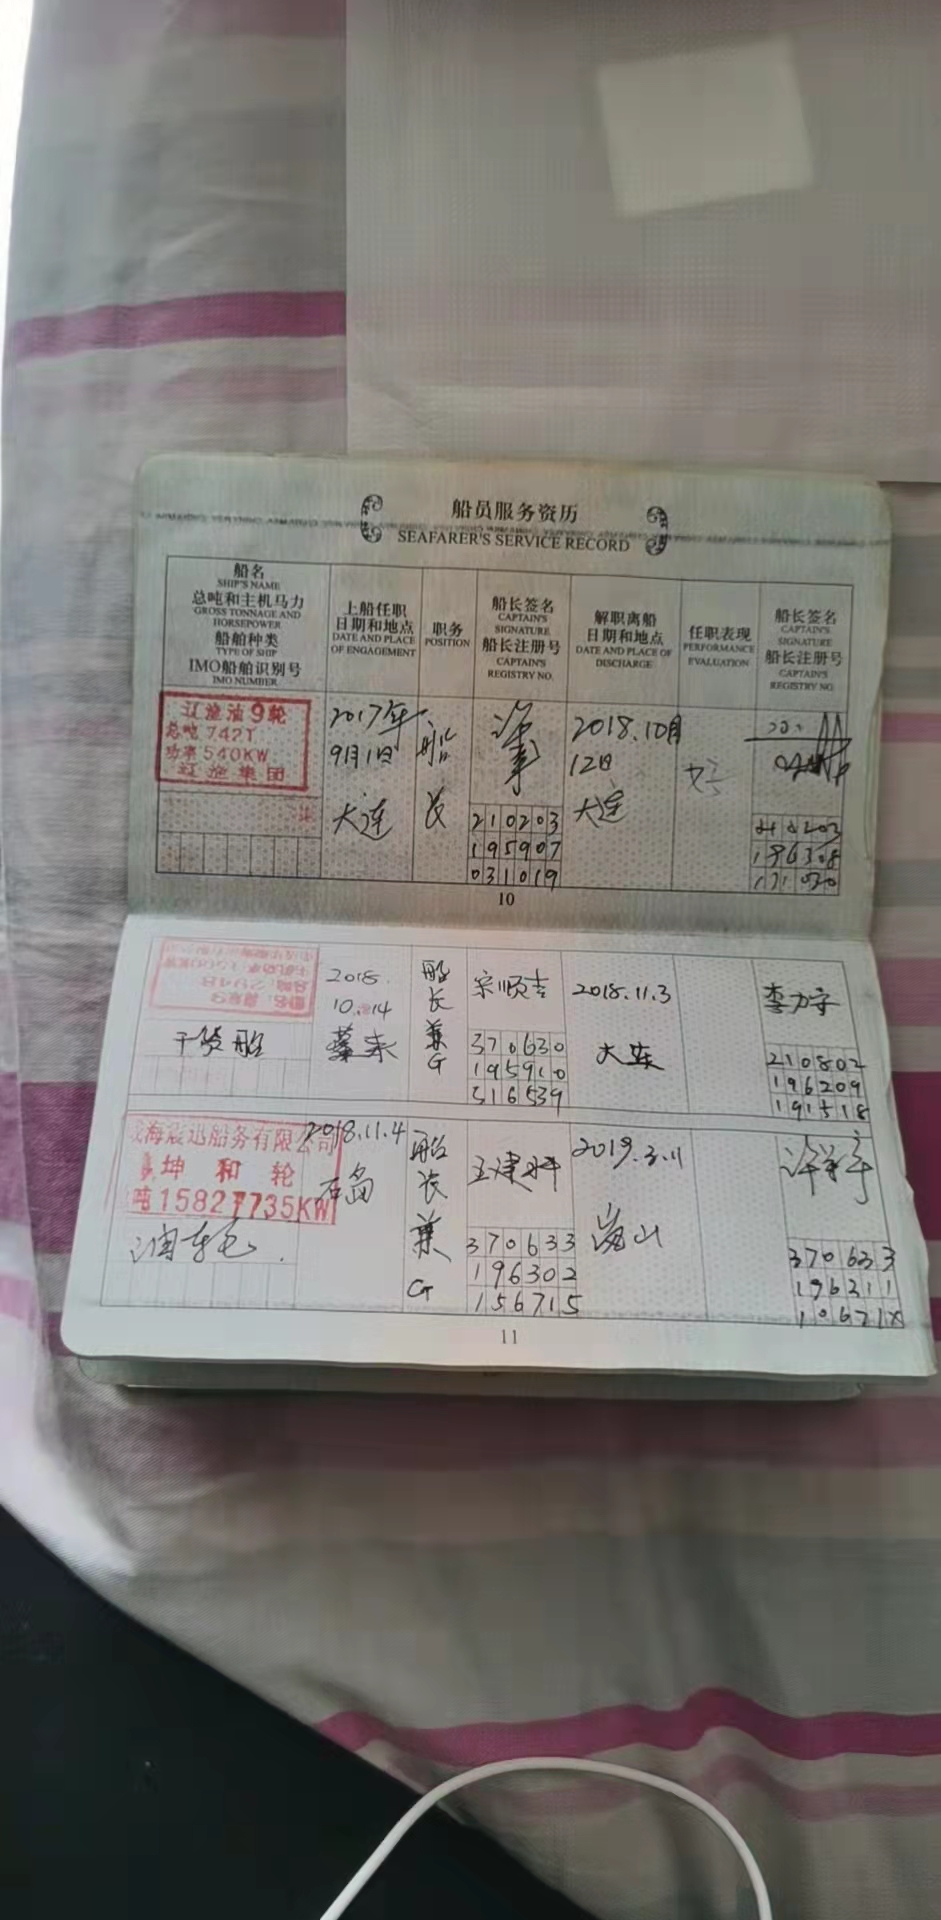 船员服务资历
SEAFARER'S SERVICE RECORD
船名
SHIP'S NAME
总吨和主机马力
GROSS TONNAGE AND
HORSEPOWER
船舶种类
TYPE OF SHIP
IMO船舶识别号
IMO NUMBER
上船任职
日期和地点
DATE AND PLACE
OF ENGAGEMENT
职务
POSITION
船长签名
CAPTAIN'S
SIGNATURE
船长注册号
CAPTAIN'S
REGISTRY NO.
解职离船
日期和地点
DATE AND PLACE OF
DISCHARGE
任职表现
PERFORMANCE
EVALUATION
船长签名
CAPTAIN'S
SIGNATURE
船长注册号
CAPTAIN'S
REGISTRY NO
辽渔油9轮
总吨742T
功率540KW
辽渔集团
2017年
9月1日
大连
船
长
210203
195907
031019
2018.10月
12日
大连
10
干货船
2018.
10.14
蓬莱
船
长
兼
G
宗顺吉
370630
195910
316539
2018.11.3
大东
李力宇
210802
196209
海宸迅船务有限公司
坤和轮
吨15827735KW
油船
2018.11.4
石岛
船
长
兼
G
370633
196302
156715
2019.3.11
岚山
370633
196211
11